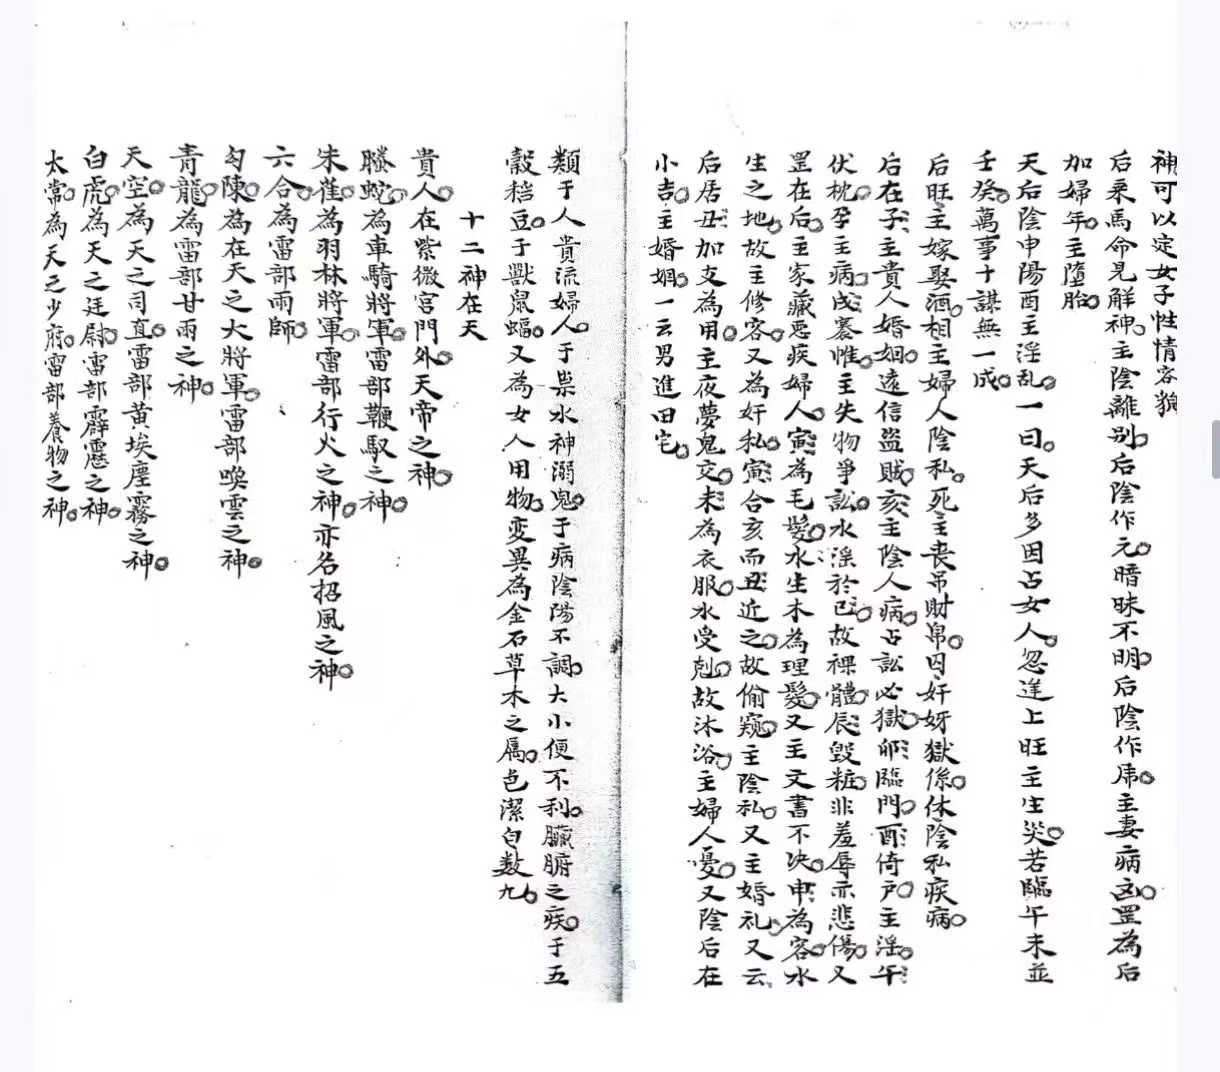 神可以定女子性情容貌
后乘馬命見解神主陰離别后陰作元暗昧不明后陰作虎主妻病凶罡為后
加婦年主墮胎
天后陰申陽酉主淫乱一曰天后多因占女人忽逢上旺主生災若臨午未並
壬癸萬事十謀無一成
后旺主嫁娶酒相主婦人陰私死主丧吊財帛囚奸妎獄係休陰私疾病
后在子主貴人婚姻遠信盜賊亥主陰人病占訟必獄卯臨門酉倚户主淫午
伏枕孕主病戌褰惟主失物爭訟水淫於巳故裸體辰毀粧非羞辱亦悲傷又
罡在后主家藏惡疾婦人寅為毛髮水生木為理髮又主文書不决申為容水
生之地故主修容又為奸私寅合亥而丑近之故偷窺主陰私又主婚礼又云
后居丑加支為用主夜夢鬼交未為衣服水受剋故沐浴主婦人憂又陰后在
小吉主婚姻一云男進田宅
類于人貴流婦人于祟水神溺鬼于病陰陽不調大小便不利臟腑之疾于五
穀稽豆于獸鼠蝠又為女人用物变異為金石草木之属色潔白数九
十二神在天
貴人在紫微宫門外天帝之神
螣蛇為車騎將軍雷部鞭馭之神
朱雀為羽林將軍雷部行火之神亦名招風之神
勾陳為在天之大將軍雷部喚雲之神
六合為雷部雨師
青龍為雷部甘雨之神
天空為天之司直雷部黄埃塵霧之神
白虎為天之廷尉雷部霹靂之神
太常為天之少府雷部養物之神